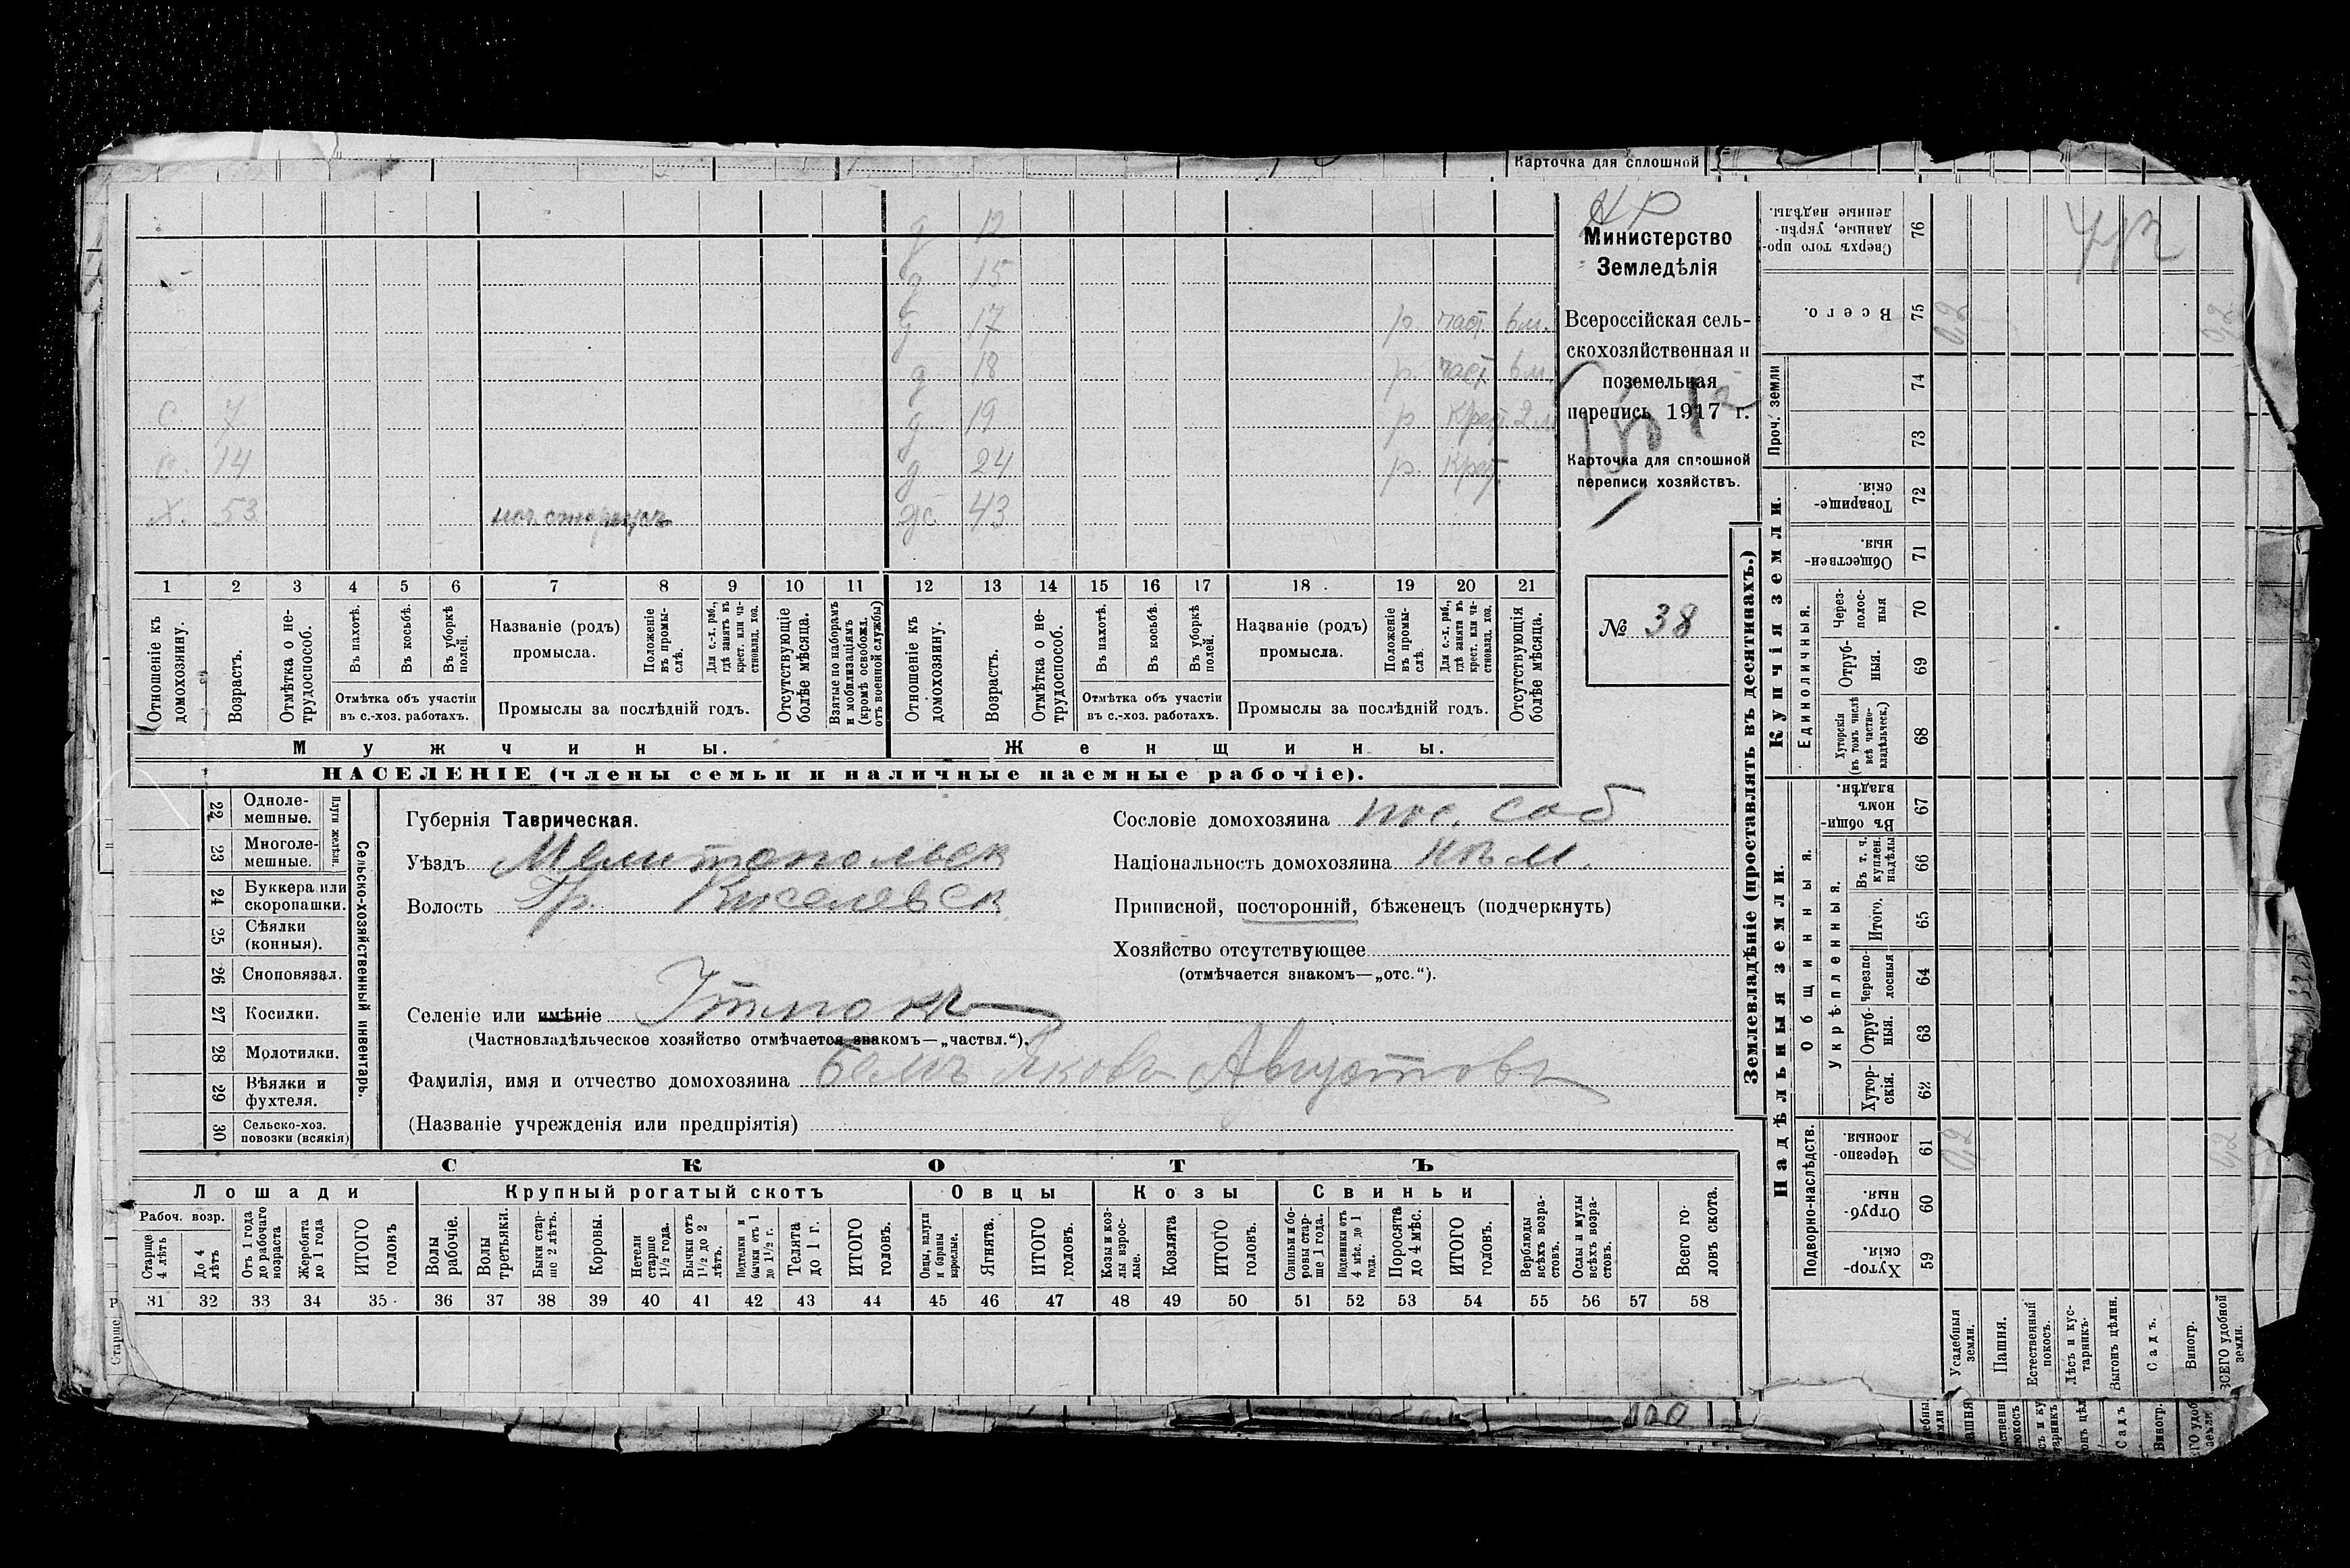 Карточка для сплошной
д 12
д 15
д 17 р. част. 6 м.
д 18 р. част. 6 м.
С. 7 д 19 р. Крест. 2 м
С. 14 д 24 р. Крест.
Х. 53 ж. 43
1 2 3 4 5 6 7 8 9 10 11 12 13 14 15 16 17 18 19 20 21
Отношеніе къ домохозяину.
Возрастъ.
Отмѣтка о нетрудоспособ.
Въ пахотѣ.
Въ косьбѣ.
Въ уборкѣ полей.
Отмѣтка объ участіи въ с.-хоз. работахъ.
Названіе (родъ) промысла.
Положеніе въ промыслѣ.
Для с.-х. раб., гдѣ занятъ въ крест. или частновлад. хоз.
Промыслы за послѣдній годъ.
Отсутствующіе болѣе мѣсяца.
Взятые по наборамъ и мобилизаціямъ (кромѣ освобожд. отъ военной службы)
Отношеніе къ домохозяину.
Возрастъ.
Отмѣтка о нетрудоспособ.
Въ пахотѣ.
Въ косьбѣ.
Въ уборкѣ полей.
Отмѣтка объ участіи въ с.-хоз. работахъ.
Названіе (родъ) промысла.
Положеніе въ промыслѣ.
Для с.-х. раб., гдѣ занята въ крест. или частновлад. хоз.
Промыслы за послѣдній годъ.
Отсутствующія болѣе мѣсяца.
Мужчины.
Женщины.
НАСЕЛЕНІЕ (члены семьи и наличные наемные рабочіе).
Министерство
Земледѣлія
Всероссійская сель-
скохозяйственная и
поземельная
перепись 1917 г.
Карточка для сплошной
переписи хозяйствъ.
№ 38
22 Одноле-мешные.
23 Многоле-мешные.
Плуги желѣзн.
24 Буккера или скоропашки.
25 Сѣялки (конныя).
26 Сноповязал.
27 Косилки.
28 Молотилки.
29 Вѣялки и фухтеля.
30 Сельско-хоз. повозки (всякія)
Сельско-хозяйственный инвентарь.
Губернія Таврическая.
Уѣздъ Мелитопольск
Волость Гр. Киселевск
Селеніе или имѣніе
(Частновладѣльческое хозяйство отмѣчается знакомъ—„частвл.“).
Фамилія, имя и отчество домохозяина Бемъ Яковъ Августовъ
(Названіе учрежденія или предпріятія)
Сословіе домохозяина пос. соб
Національность домохозяина нѣм.
Приписной, посторонній, бѣженецъ (подчеркнуть)
Хозяйство отсутствующее
(отмѣчается знакомъ—„отс.“).
СКОТЪ
Лошади
Крупный рогатый скотъ
Овцы
Козы
Свиньи
Рабоч. возр.
Старше 4 лѣтъ
До 4 лѣтъ
Отъ 1 года до рабочаго возраста
Жеребята до 1 года
ИТОГО головъ
Волы рабочіе.
Волы третьяки.
Быки старше 2 лѣтъ.
Коровы.
Нетели старше 1 1/2 года.
Бычки отъ 1 1/2 до 2 лѣтъ.
Подтелки и бычки отъ 1 до 1 1/2 г.
Телята до 1 г.
ИТОГО головъ.
Овцы, валухи и бараны взрослые.
Ягнята.
ИТОГО головъ.
Козы и козлы взрослые.
Козлята
ИТОГО головъ.
Свиньи и боровы старше 1 года.
Подсвинки отъ 4 мѣс. до 1 года.
Поросята до 4 мѣс.
ИТОГО головъ.
Верблюды всѣхъ возрастовъ.
Ослы и мулы всѣхъ возрастовъ.
Всего головъ скота.
31 32 33 34 35 36 37 38 39 40 41 42 43 44 45 46 47 48 49 50 51 52 53 54 55 56 57 58
Землевладѣніе (проставлять въ десятинахъ.)
Надѣльныя земли.
Купчія земли.
Проч. земли
Подворно-наслѣдств.
Общинныя.
Укрѣпленныя.
Единоличныя.
59 Хутор-скія.
60 Отруб-ныя.
61 Черезпо-лосныя. 0,2 0,2
62 Хутор-скія.
63 Отруб-ныя.
64 Черезпо-лосныя
65 Итого.
66 Въ т. ч. куплен. надѣлы
67 Въ общин-номъ владѣн.
68 Хуторскія (въ томъ числѣ всѣ частно-владѣльческ.)
69 Отруб-ныя.
70 Через-полос-ныя
71 Обществен-ныя.
72 Товарище-скія.
73
74
75 Всего. 0,2 0,2
76 Сверхъ того про-данные, укрѣп-ленные надѣлы.
Усадебныя земли.
Пашня.
Естественный покосъ.
Лѣсъ и кус-тарникъ.
Выгонъ цѣлин.
Садъ.
Виногр.
ВСЕГО удобной земли.